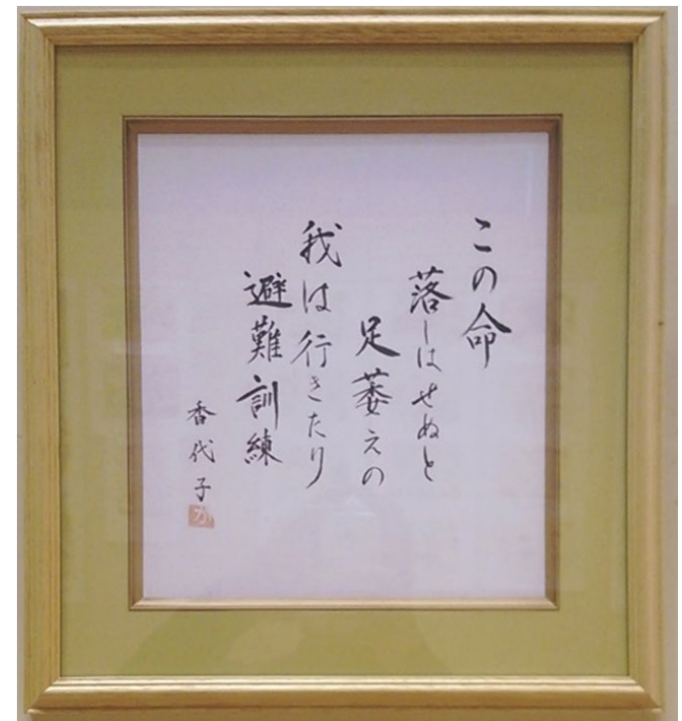 この命
落しはせぬと
足萎えの
我は行きたり
避難訓練
香代子
か